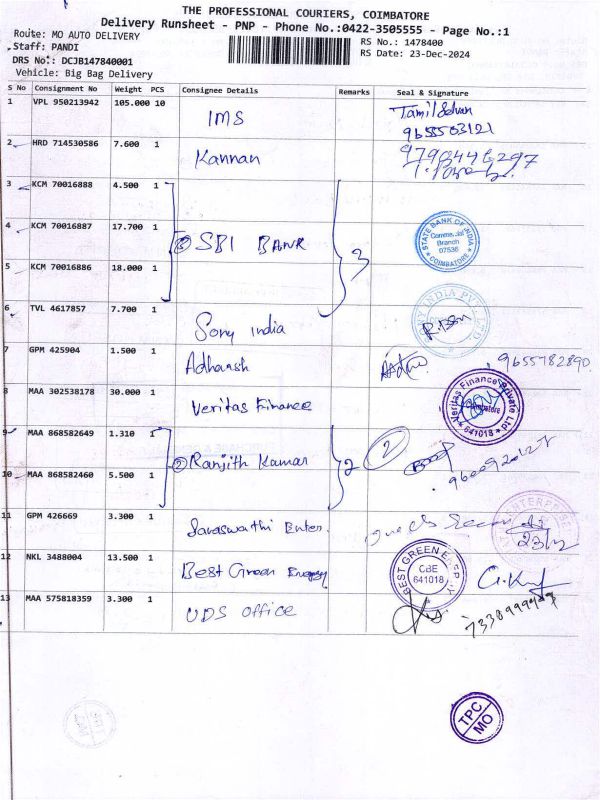 THE PROFESSIONAL COURIERS, COIMBATORE
Delivery Runsheet - PNP - Phone No.:0422-3505555 - Page No.:1
Route: MO AUTO DELIVERY RS No.: 1478400
Staff: PANDI RS Date: 23-Dec-2024
DRS No: DCJB147840001
Vehicle: Big Bag Delivery
S No Consignment No Weight PCS Consignee Details Remarks Seal & Signature
1 VPL 950213942 105.000 10 IMS Tamil Selvan
9655503121
2 HRD 714530586 7.600 1 Kannan 9790446297
3 KCM 70016888 4.500 1
4 KCM 70016887 17.700 1 ③ SBI BANK 3 STATE BANK OF INDIA Commercial Branch 07536 COIMBATORE
5 KCM 70016886 18.000 1
6 TVL 4617857 7.700 1 Sony India SONY INDIA PVT. LTD.
7 GPM 425904 1.500 1 Adharsh 9655782890
8 MAA 302538178 30.000 1 Veritas Finance Veritas Finance Private Ltd Coimbatore 641018
9 MAA 868582649 1.310 1 ② Ranjith Kumar 2 2
10 MAA 868582460 5.500 1
11 GPM 426669 3.300 1 Saraswathi Enter. ENTERPRISE
23/12
12 NKL 3488004 13.500 1 Best Green Energy BEST GREEN ENERGY CBE 641018
13 MAA 575818359 3.300 1 UDS office
TPC
MO